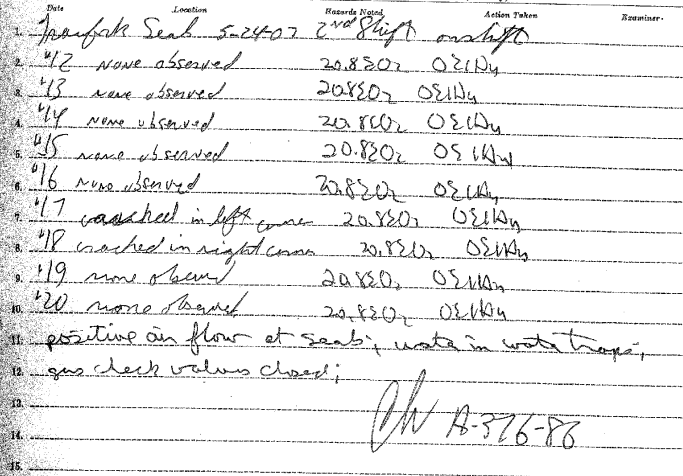 Date Location Hazards Noted Action Taken Examiner
1. Seals 5-24-07 2nd Shift onshift
2. #12 none observed 20.8%O2 0%CH4
3. #13 none observed 20.8%O2 0%CH4
4. #14 none observed 20.8%O2 0%CH4
5. #15 none observed 20.8%O2 0%CH4
6. #16 none observed 20.8%O2 0%CH4
7. #17 cracked in left corner 20.8%O2 0%CH4
8. #18 cracked in right corner 20.8%O2 0%CH4
9. #19 none observed 20.8%O2 0%CH4
10. #20 none observed 20.8%O2 0%CH4
11. positive air flow at seals; water in water traps;
12. gas check valves closed;
13. A-376-86
14.
15.